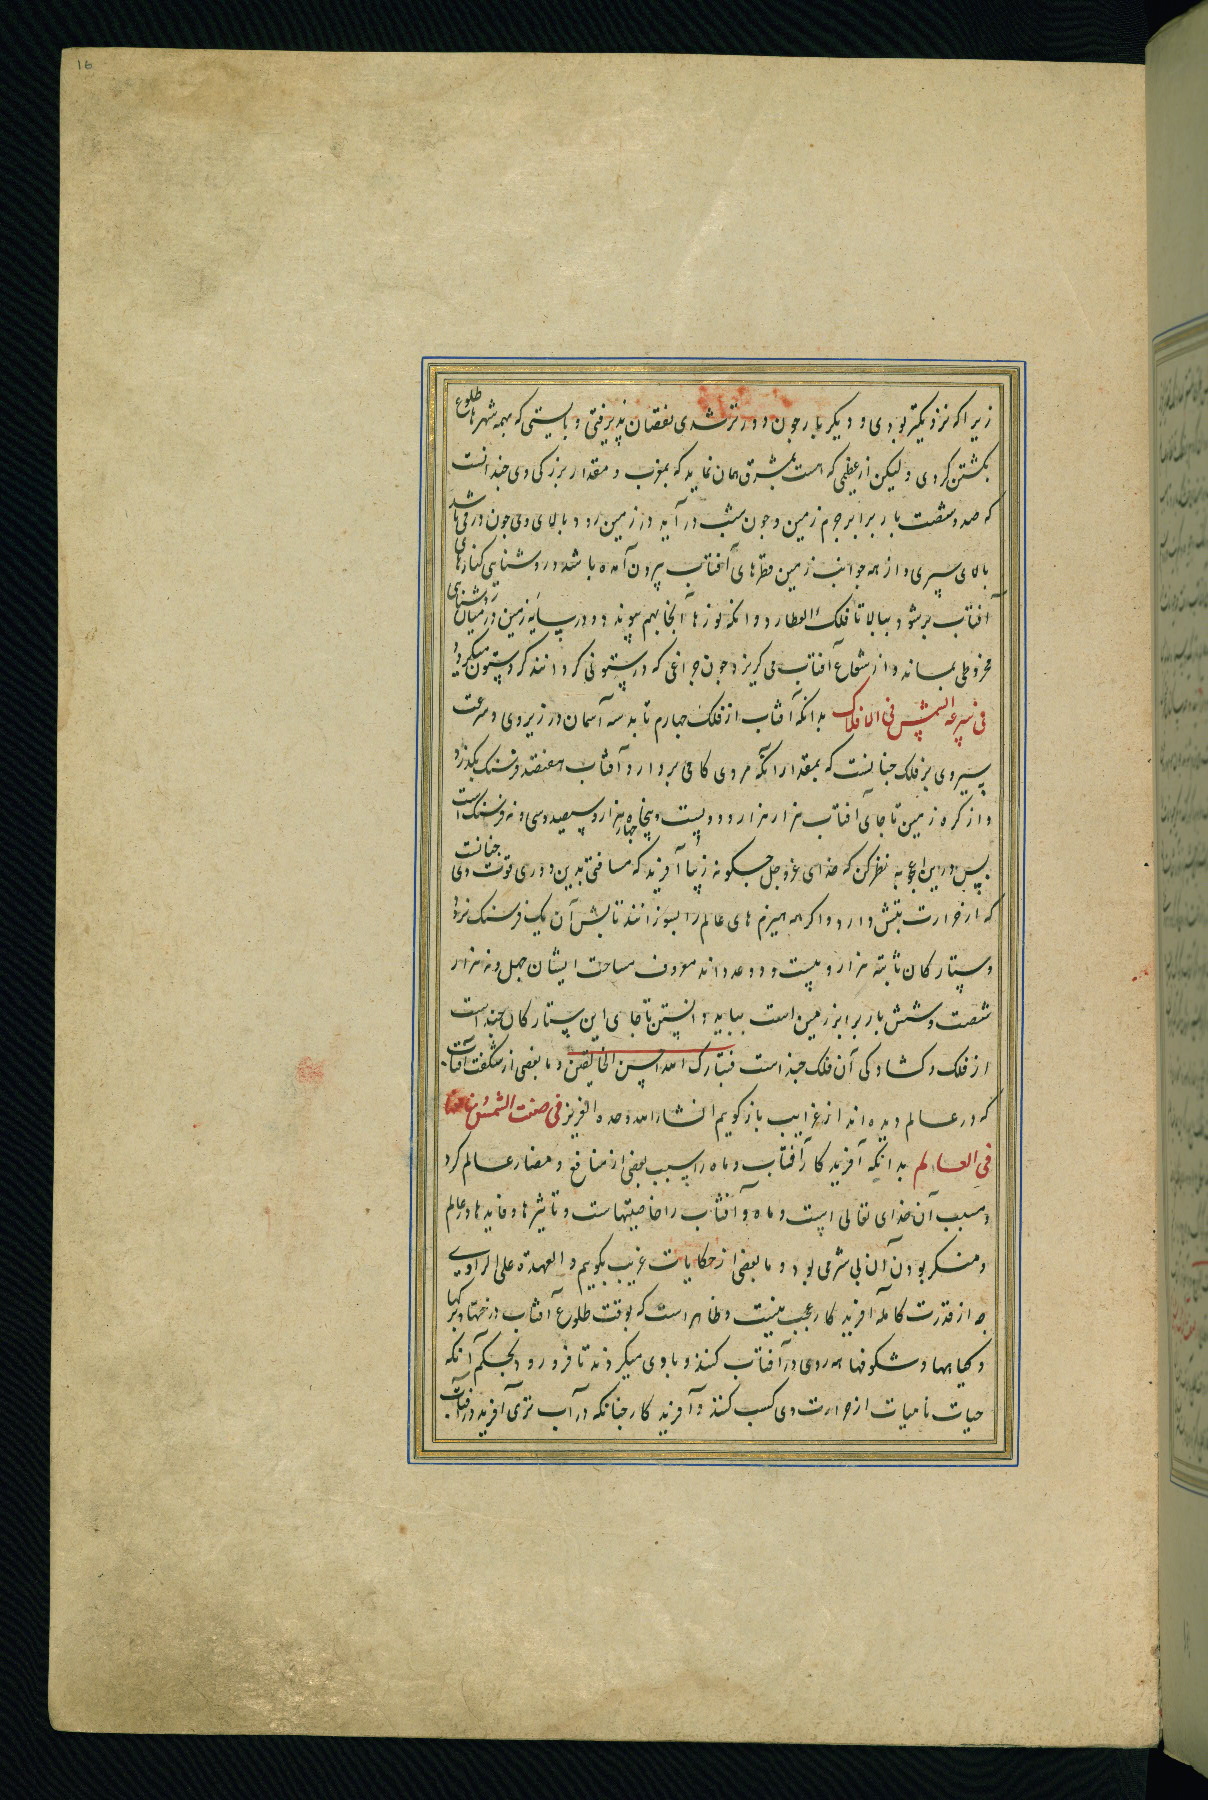 16
زیرا که نزدیکتر بودی و دیکر بار جون دورتر شدی نقصان پذیرفتی و بایستی که بهمه شهرها طلوع
یکشتن کردی و لیکن از عظیمی که هست بمشرق همان نماید که بمغرب و مقدار بزرکی وی جندانست
که صد و شصت بار برابر جرم زمین و جون شب در آید در زمین رود بالای وی جون در فی باشد
بالای سپری و از همه جوانب زمین قطرهای آفتاب بیرون آمده باشد و روشنایی کنارهای
آفتاب بر شود ببالا تا فلک العطارد و انکه نورها آنجا بهم پیوندد و در سایه زمین در میان روشنای
مخروطی بماند و از شعاع آفتاب می کریزد جون جراغی که در ستونی کردانند کرد ستون میکردد
فی سرعه الشمس فی الافلاک بدانکه آفتاب از فلک جهارم تابد سه آسمان در زیر وی و سرعت
سیر وی بر فلک جنانست که بمقدار آنکه مردی کامی بردارد آفتاب هفتصد فرسنک بکذرد
و از کره زمین تا جای آفتاب هزار هزار و دویست و پنجاه جهار هزار و سیصد و سی و نه فرسنک است
پس در این اعجوبه نظر کن که خدای عز و جل جکونه زیبا آفرید که مسافتی بدین دوری قوت وی جنانست
که از حرارت تبش دارد و اکر همه هیزم های عالم را بسوزانند تابش آن یک فرسنک نرود
و ستارکان ثابته هزار و بیست و دو عدد اند معروف مساحت ایشان جهل و نه هزار
شصت و شش بار برابر زمین است بباید دانستن تا جای این ستارکان جند است
از فلک و کشادکی آن فلک جند است فتبارک الله احسن الخالقین و ما بعضی از شکفت آفتاب
که در عالم دیده اند از غرایب باز کویم انشاء الله وحده العزیز فی صفت الشمس
فی العالم بدانکه آفریدکار آفتاب و ماه را سبب بعضی از منافع و مضار عالم کرد
و مسبب آن خدای تعالی است و ماه و آفتاب را خاصیتهاست و تاثیرها و فایدها در عالم
و منکر بودن آن بی شرمی بود و ما بعضی از حکایات غریب بکوییم و العهدة علی الراوی
جه از قدرت کامله آفریدکار عجب نیست و ظاهر است که بوقت طلوع آفتاب درختها و برکها
و کیاهها و شکوفها همه روی در آفتاب کنند و با وی میکردند تا فرو رود بحکم آنکه
حیات نامیات از حرارت وی کسب کنند و آفریدکار جنانکه در آب تری آفرید در آفتاب